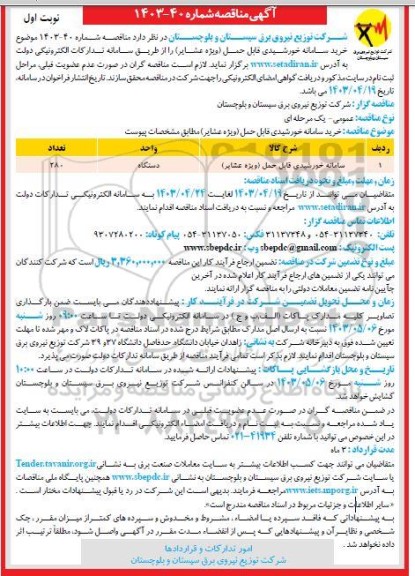 آگهی مناقصه شماره ۴۰-۱۴۰۳
نوبت اول
شرکت توزیع نیروی برق سیستان و بلوچستان در نظر دارد مناقصه شماره ۴۰-۱۴۰۳ موضوع
خرید سامانه خورشیدی قابل حمل (ویژه عشایر) را از طریق سامانه تدارکات الکترونیکی دولت
به آدرس www.setadiran.ir برگزار نماید. لازم است مناقصه گران در صورت عدم عضویت قبلی، مراحل
ثبت نام در سایت مذکور و دریافت گواهی امضای الکترونیکی را جهت شرکت در مناقصه محقق سازند. تاریخ انتشار فراخوان در سامانه،
تاریخ ۱۴۰۳/۰۴/۱۹ می باشد.
مناقصه گزار: شرکت توزیع نیروی برق سیستان و بلوچستان
نوع مناقصه: عمومی - یک مرحله ای
موضوع مناقصه: خرید سامانه خورشیدی قابل حمل (ویژه عشایر) مطابق مشخصات پیوست
ردیف شرح کالا واحد تعداد
۱ سامانه خورشیدی قابل حمل (ویژه عشایر) دستگاه ۲۸۰
زمان و مهلت، مبلغ و نحوه دریافت اسناد مناقصه:
متقاضیان می توانند از تاریخ ۱۴۰۳/۰۴/۱۹ لغایت ۱۴۰۳/۰۴/۲۴ به سامانه الکترونیکی تدارکات دولت
به آدرس www.setadiran.ir مراجعه و نسبت به دریافت اسناد مناقصه اقدام نمایند.
اطلاعات تماس مناقصه گزار:
تلفن: ۳۱۱۳۷۳۴۰-۰۵۴ و ۳۱۱۳۷۳۴۸ نمابر: ۳۱۱۳۷۰۵۰-۰۵۴ پیام کوتاه: ۹۳۰۷۲۸۰۲۰۰
پست الکترونیک: sbepdc@gmail.com وب: www.sbepdc.ir
مبلغ و نوع تضمین شرکت در مناقصه: تضمین ارجاع فرآیند کار این مناقصه ۳,۳۶۰,۰۰۰,۰۰۰ ریال است که شرکت کنندگان
می توانند یکی از تضمین های ارجاع فرآیند کار اعلام شده در آخرین
آیین نامه تضمین معاملات دولتی را به مناقصه گزار ارائه نمایند.
زمان و محل تحویل تضمین شرکت در فرآیند کار: پیشنهاددهندگان می بایست ضمن بارگذاری
تصاویر کلیه مدارک پاکات (الف، ب و ج) در سامانه الکترونیکی دولت تا ساعت ۰۹:۰۰ روز شنبه
مورخ ۱۴۰۳/۰۵/۰۶ نسبت به ارسال اصل مدارک مطابق شرایط درج شده در اسناد مناقصه در پاکات لاک و مهر شده تا مهلت
تعیین شده فوق به دبیرخانه شرکت به نشانی: زاهدان خیابان دانشگاه حدفاصل دانشگاه ۲۷ و ۲۹ شرکت توزیع نیروی برق
سیستان و بلوچستان اقدام نمایند. لازم بذکر است تمامی فرآیند مناقصه از طریق سامانه تدارکات دولت صورت می پذیرد.
تاریخ و محل بازگشایی پاکات: پیشنهادات ارائه شده در سامانه تدارکات دولت در ساعت ۱۰:۰۰
روز شنبه مورخ ۱۴۰۳/۰۵/۰۶ در سالن کنفرانس شرکت توزیع نیروی برق سیستان و بلوچستان
گشایش خواهد شد.
در ضمن مناقصه گران در صورت عدم عضویت قبلی در سامانه تدارکات دولت، می بایست به سایت
یاد شده مراجعه و نسبت به ثبت نام و دریافت امضاء الکترونیکی اقدام نمایند. جهت اطلاعات بیشتر
در این خصوص می توانید با شماره تلفن ۴۱۹۳۴-۰۲۱ تماس حاصل فرمایید.
مدت قرارداد: ۳ ماه
متقاضیان می توانند جهت کسب اطلاعات بیشتر به سایت معاملات صنعت برق به نشانی Tender.tavanir.org.ir
یا سایت شرکت توزیع نیروی برق سیستان و بلوچستان به نشانی www.sbepdc.ir همچنین پایگاه ملی مناقصات
به آدرس www.iets.mporg.ir مراجعه فرمایند. بدیهی است این شرکت در رد یا قبول پیشنهادات مختار است.
«سایر اطلاعات و جزئیات مربوط در اسناد مناقصه مندرج است».
به پیشنهاداتی که فاقد سپرده یا امضاء، مشروط و مخدوش و سپرده های کمتر از میزان مقرر، چک
شخصی و نظایر آن و پیشنهادهایی که پس از انقضاء مدت مقرر در آگهی واصل شود، مطلقاً ترتیب اثر
داده نخواهد شد.
امور تدارکات و قراردادها
شرکت توزیع نیروی برق سیستان و بلوچستان